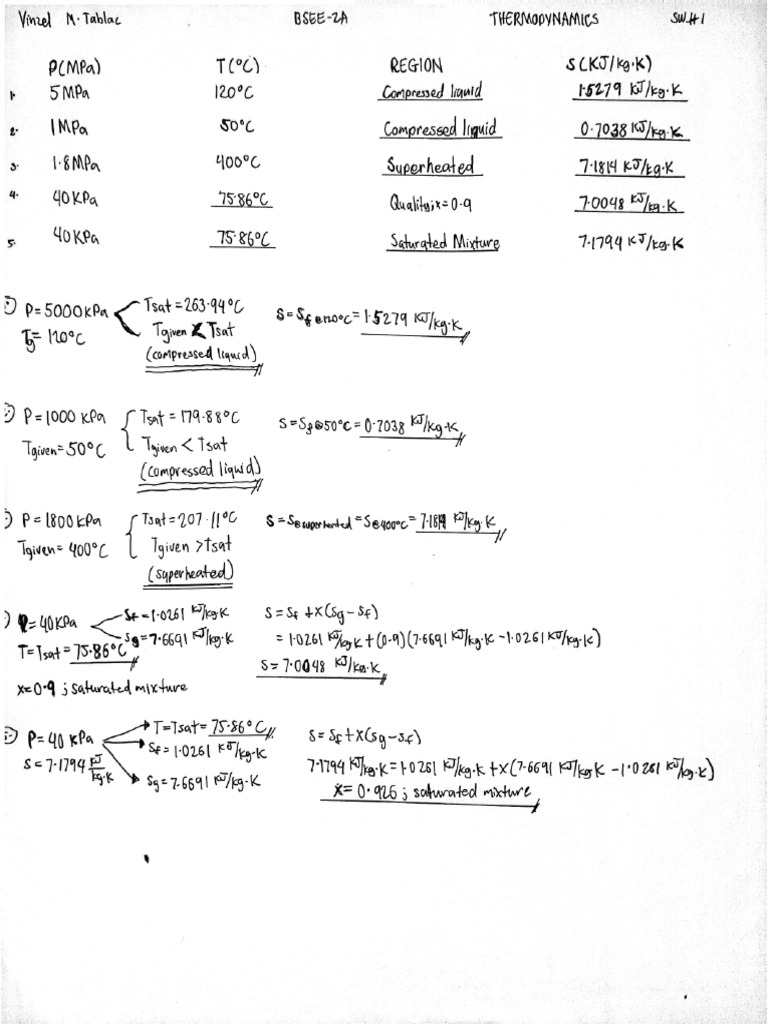 Vinzel M. Tablac BSEE-2A THERMODYNAMICS SW#1
P(MPa) T(°C) REGION S(KJ/kg·K)
1. 5 MPa 120°C Compressed liquid 1.5279 KJ/kg·K
2. 1 MPa 50°C Compressed liquid 0.7038 KJ/kg·K
3. 1.8 MPa 400°C Superheated 7.1814 KJ/kg·K
4. 40 KPa 75.86°C Quality; x = 0.9 7.0048 KJ/kg·K
5. 40 KPa 75.86°C Saturated Mixture 7.1794 KJ/kg·K
P = 5000 kPa Tsat = 263.94°C S = Sf@120°C = 1.5279 KJ/kg·K
Tg = 120°C Tgiven < Tsat
(compressed liquid)
P = 1000 kPa Tsat = 179.88°C S = Sf@50°C = 0.7038 KJ/kg·K
Tgiven = 50°C Tgiven < Tsat
(compressed liquid)
P = 1800 kPa Tsat = 207.11°C S = S@superheated = S@400°C = 7.1814 KJ/kg·K
Tgiven = 400°C Tgiven > Tsat
(superheated)
P = 40 KPa Sf = 1.0261 KJ/kg·K S = Sf + x(Sg - Sf)
T = Tsat = 75.86°C Sg = 7.6691 KJ/kg·K = 1.0261 KJ/kg·K + (0.9)(7.6691 KJ/kg·K - 1.0261 KJ/kg·K)
S = 7.0048 KJ/kg·K
x = 0.9 ; saturated mixture
P = 40 kPa T = Tsat = 75.86°C S = Sf + x(Sg - Sf)
S = 7.1794 KJ/kg·K Sf = 1.0261 KJ/kg·K 7.1794 KJ/kg·K = 1.0261 KJ/kg·K + x(7.6691 KJ/kg·K - 1.0261 KJ/kg·K)
Sg = 7.6691 KJ/kg·K x = 0.926 ; saturated mixture